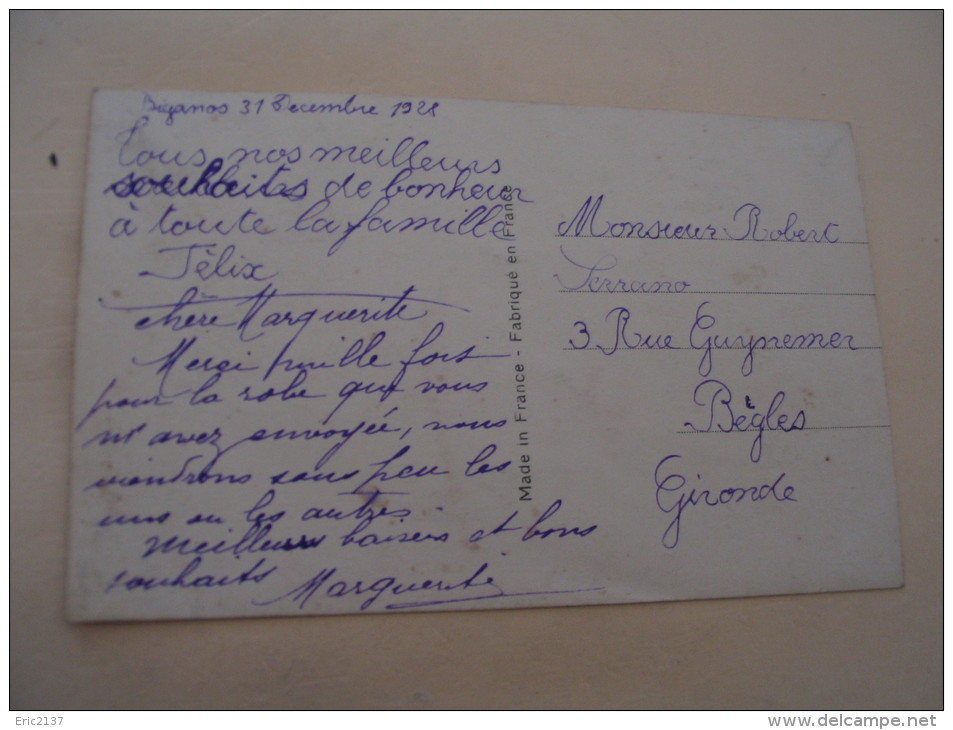 Biganos 31 Decembre 1928
Tous nos meilleurs
souhaits de bonheur
à toute la famille
Félix
chère Marguerite
Merci mille fois
pour la robe que vous
m'avez envoyée, nous
viendrons sous peu les
uns ou les autres.
Meilleurs baisers et bons
souhaits Marguerite
Made in France - Fabriqué en France
Monsieur Robert
Serrano
3 Rue Guynemer
Bègles
Gironde
Eric2137
www.delcampe.net